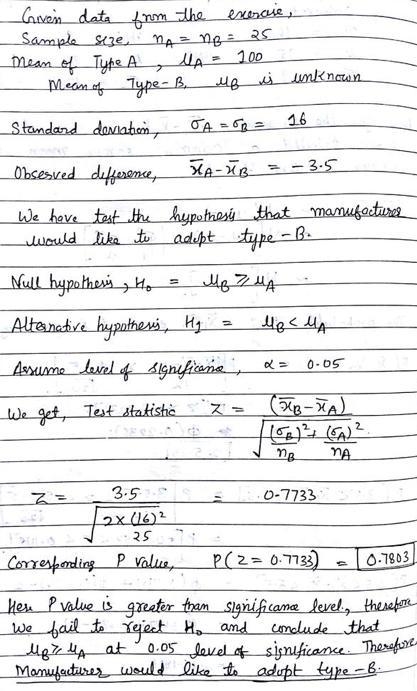 Given data from the exercise,
Sample size, nA = nB = 25
Mean of Type A , μA = 100
Mean of Type-B, μB is unknown
Standard deviation, σA = σB = 16
Observed difference, x̄A - x̄B = -3.5
We have test the hypothesis that manufactures
would like to adopt type-B.
Null hypothesis, H₀ = μB ≥ μA
Alternative hypothesis, H₁ = μB < μA
Assume level of significance, α = 0.05
We get, Test statistic Z = (x̄B - x̄A) / √((σB)²/nB + (σA)²/nA)
Z = 3.5 / √(2×(16)²/25) = 0.7733
Corresponding P value, P(Z = 0.7733) = 0.7803
Here P value is greater than significance level, therefore
we fail to reject H₀ and conclude that
μB ≥ μA at 0.05 level of significance. Therefore
Manufacturer would like to adopt type-B.